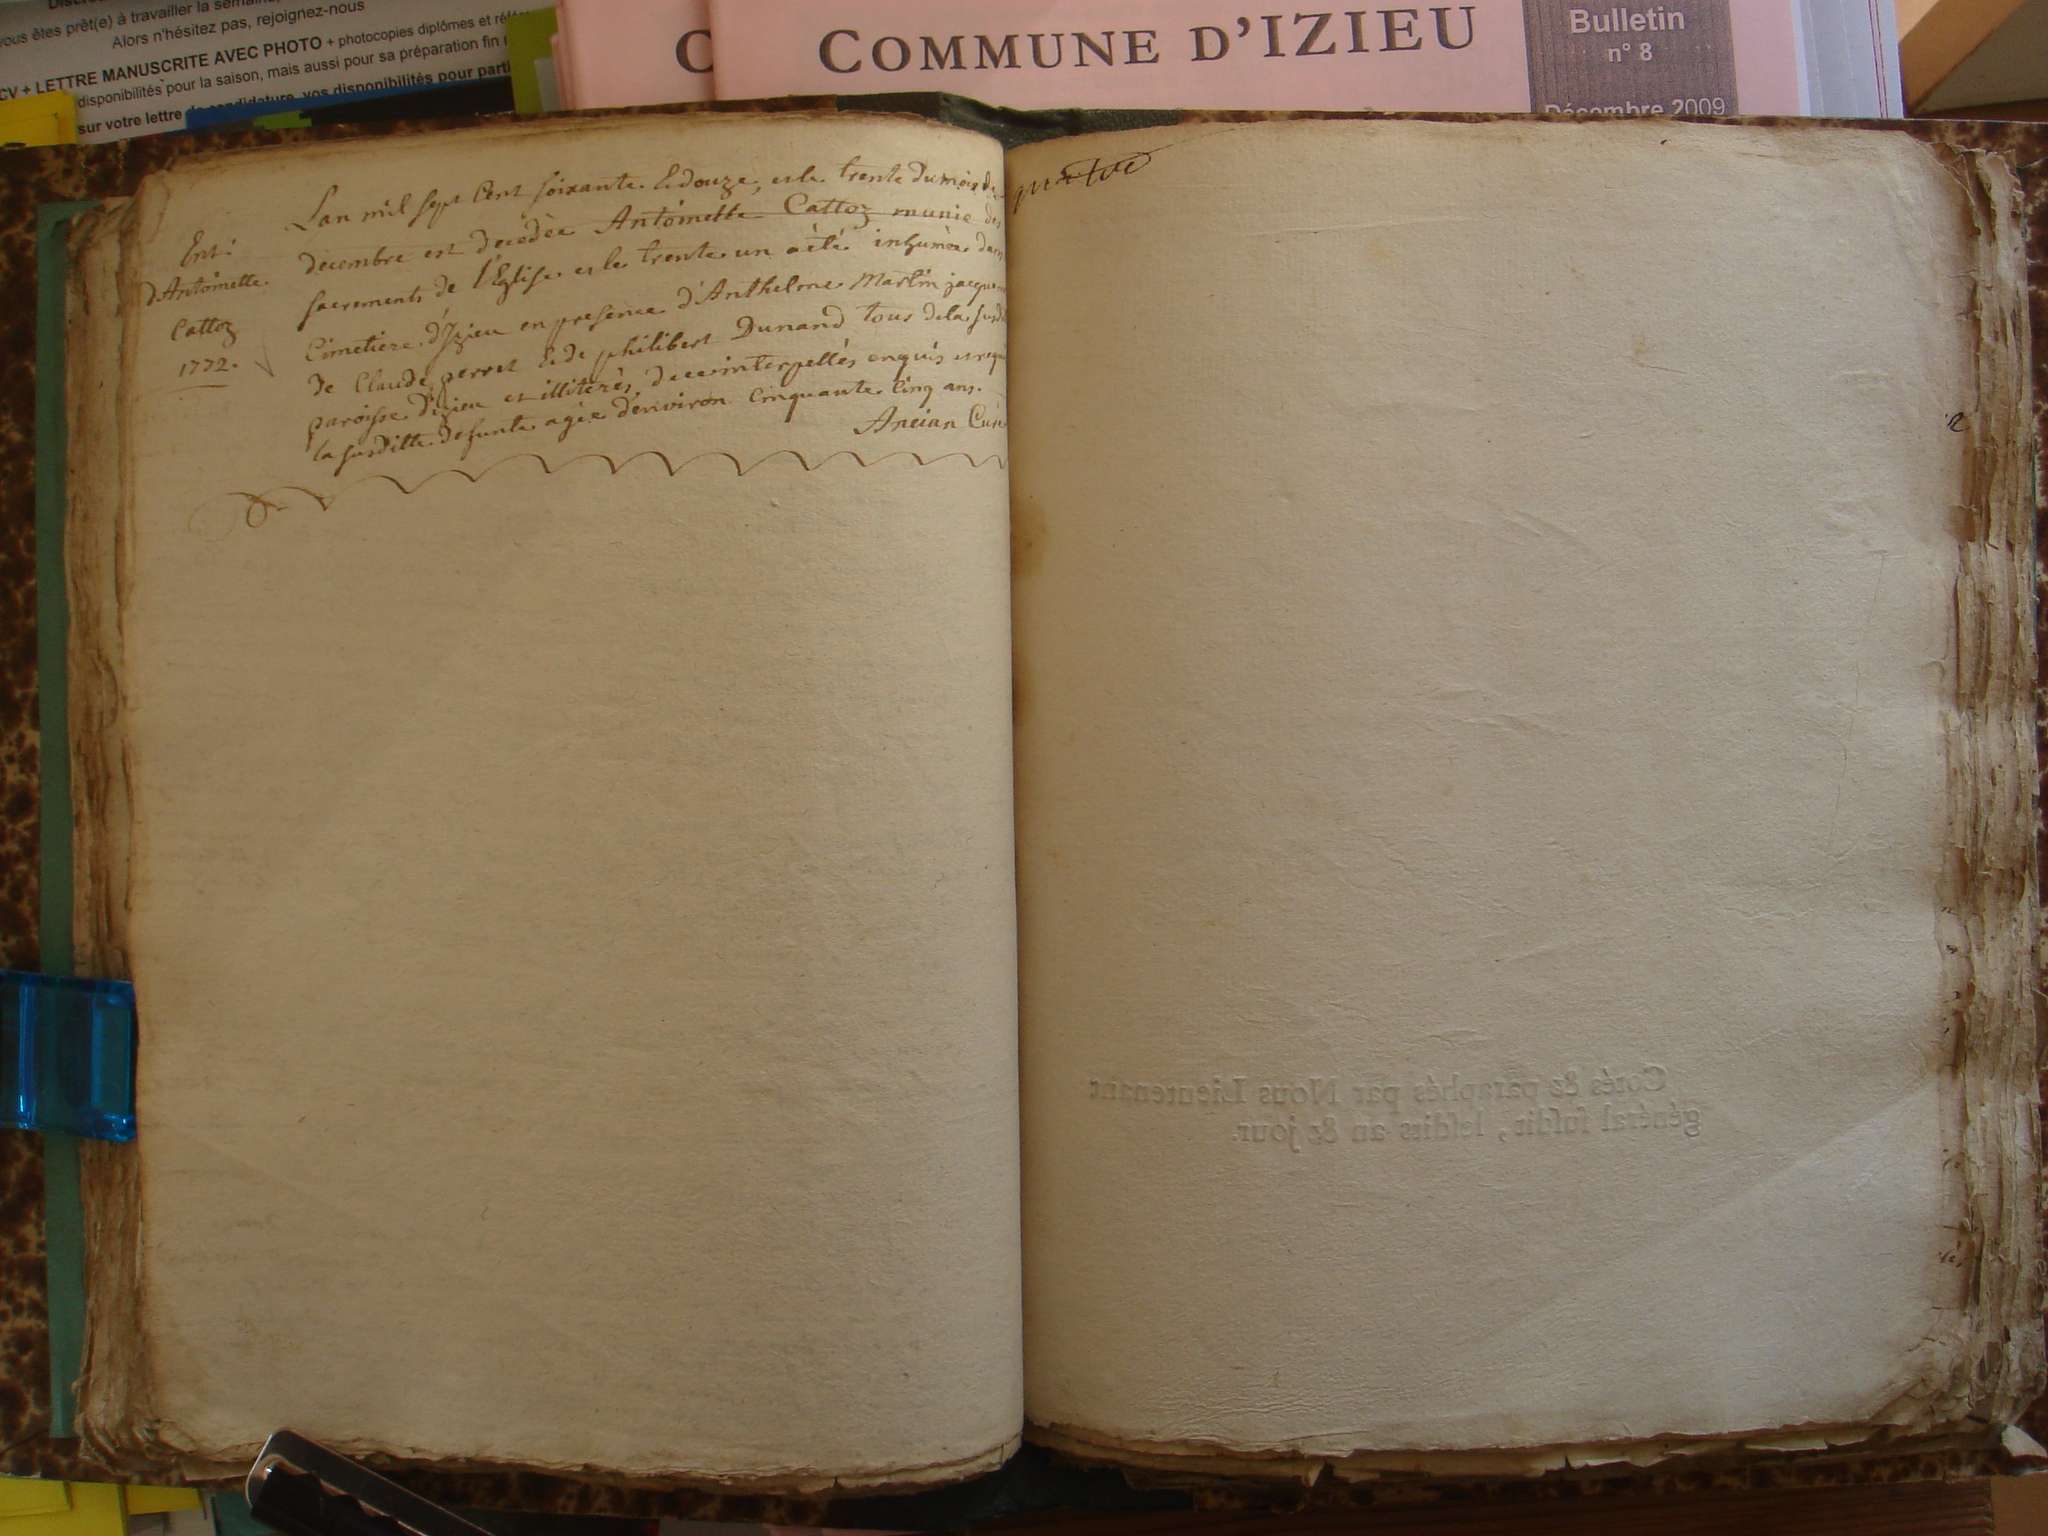 vous êtes prêt(e) à travailler la semaine,
Alors n'hésitez pas, rejoignez-nous
CV + LETTRE MANUSCRITE AVEC PHOTO + photocopies diplômes et
disponibilités pour la saison, mais aussi pour sa préparation fin
sur votre lettre de candidature, vos disponibilités pour
C
COMMUNE D'IZIEU
Bulletin
n° 8
Décembre 2009
Ent:
d'Antoinette
Cattoz
1772.
Lan mil sept Cent soixante & douze, et le trente du mois de
decembre est decedée Antoinette Cattoz munie des
sacrements de l'Eglise et le trente un a été inhumée dans
Cimetiere d'Izieu en presence d'Anthelme Martin
de Claude perret & de philibert Dunand tous de la
paroisse d'izieu et illiterés, de ce interpellés enquis et
la susditte defunte agée d'environ Cinquante Cinq ans.
Ancian Curé
Cotés & paraphés par Nous Lieutenant
général susdit, lesdits an & jour.